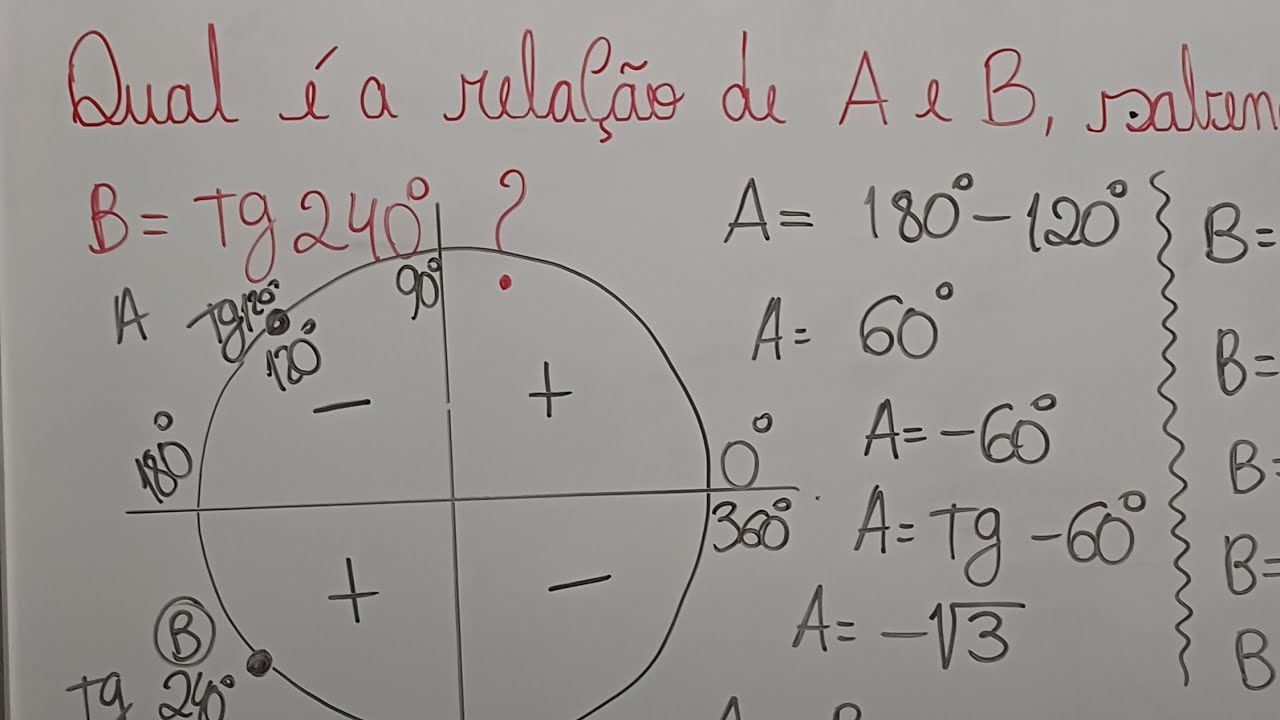 Qual é a relação de A e B, saben
B = Tg 240° ?
A = 180° - 120°
A = 60°
A = -60°
A = Tg -60°
A = -√3
B =
B =
B =
B =
B
A Tg 120°
120°
90°
180°
0°
360°
- +
+ -
B
Tg 240°